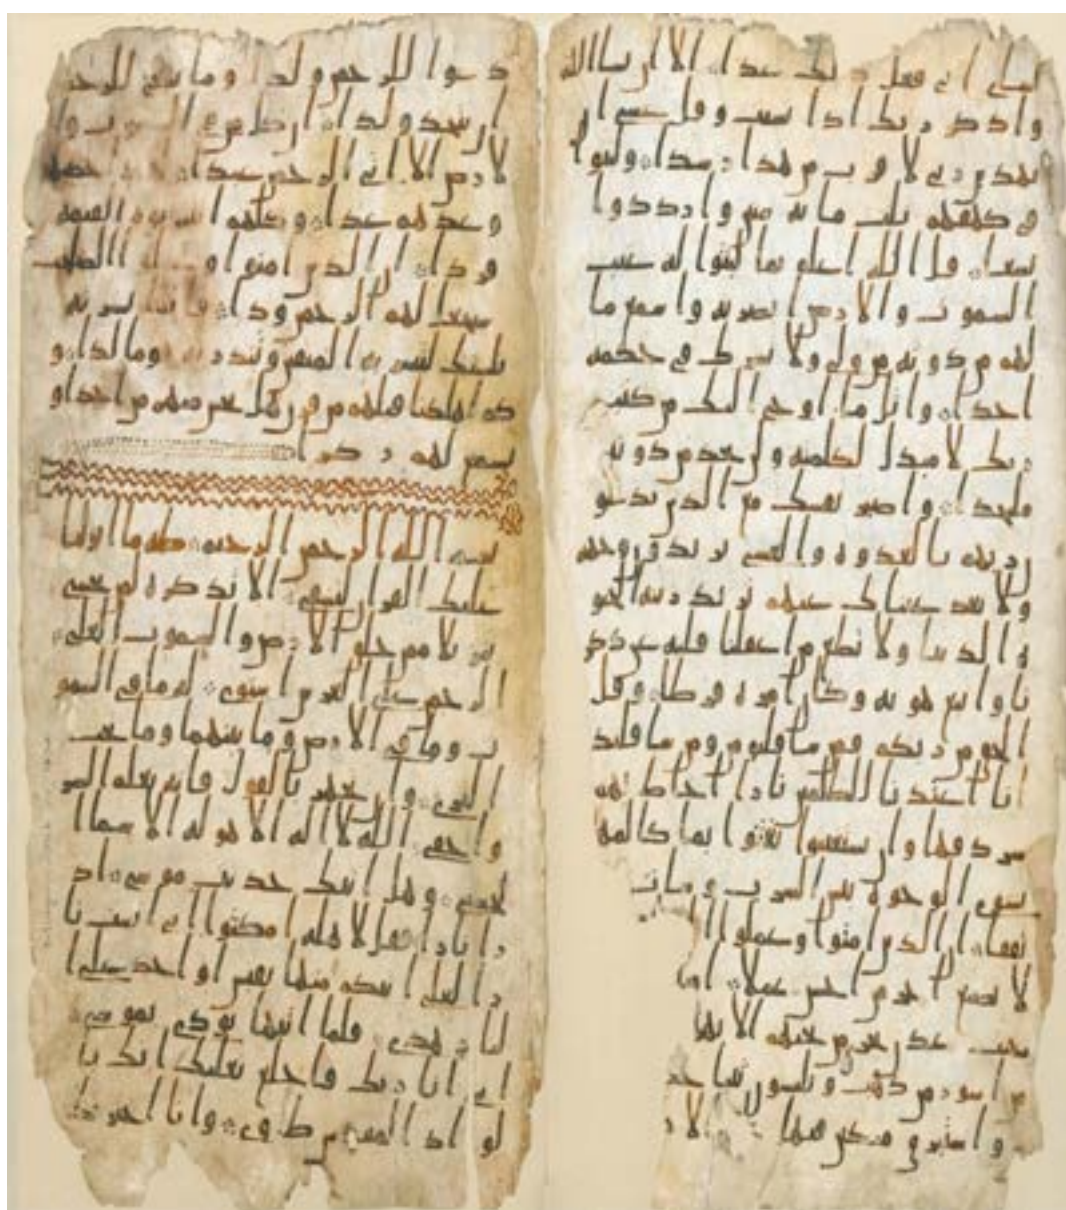 لشاي اني فعل ذلك غدا الا ان يشا الله
واذكر ربك اذا نسيت وقل عسى ان
يهدين ربي لاقرب من هذا رشدا ولبثوا
في كهفهم ثلث مائة سنين وازددوا
تسعا قل الله اعلم بما لبثوا له غيب
السموت والارض ابصر به واسمع ما
لهم من دونه من ولي ولا يشرك في حكمه
احدا واتل ما اوحي اليك من كتب
ربك لا مبدل لكلمته ولن تجد من دونه
ملتحدا واصبر نفسك مع الذين يدعو
ن ربهم بالغدوة والعشي يريدون وجهه
ولا تعد عيناك عنهم تريد زينة الحيو
ة الدنيا ولا تطع من اغفلنا قلبه عن ذكر
نا واتبع هويه وكان امره فرطا وقل
الحق من ربكم فمن شا فليومن ومن شا فليكفر
انا اعتدنا للظلمين نارا احاط بهم
سردقها وان يستغيثوا بما كالمهل
يشوي الوجوه بئس الشرب وسات
ان الذين امنوا وعملوا
لا نضيع اجر من احسن عملا
عدن تجري من تحتهم الانهر
من اسور من ذهب ويلبسون ثيبا خضر
واستبرق متكين فيها
دعوا للرحمن ولدا وما ينبغي للرحمن
ان يتخذ ولدا ان كل من في السموت وا
لارض الا اتي الرحمن عبدا لقد احصهم
وعدهم عدا وكلهم اتيه يوم القيمة
فردا ان الذين امنوا وعملوا الصلحت
سيجعل لهم الرحمن ودا فانما يسرنه
بلسنك لتبشر به المتقين وتنذر به قوما لدا و
كم اهلكنا قبلهم من قرن هل تحس منهم من احد او
تسمع لهم ركزا
بسم الله الرحمن الرحيم طه ما انزلنا
عليك القران لتشقى الا تذكرة لمن يخشى
تنزيلا ممن خلق الارض والسموت العلى
الرحمن على العرش استوى له ما في السمو
ت وما في الارض وما بينهما وما تحت
الثرى وان تجهر بالقول فانه يعلم السر
واخفى الله لا اله الا هو له الاسما ا
لحسنى وهل اتيك حديث موسى اذ
را نارا فقل لاهله امكثوا اني انست نا
را لعلي اتيكم منها بقبس او اجد على ا
لنار هدى فلما اتيها نودي يموسى
اني انا ربك فاخلع نعليك انك با
لواد المقدس طوى وانا اخترتك